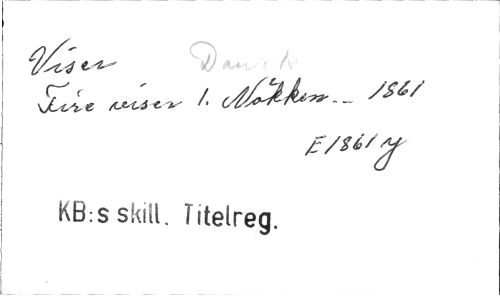 Viser Dansk
Fire viser 1. Nökken... 1861
E1861 y
KB:s skill. Titelreg.